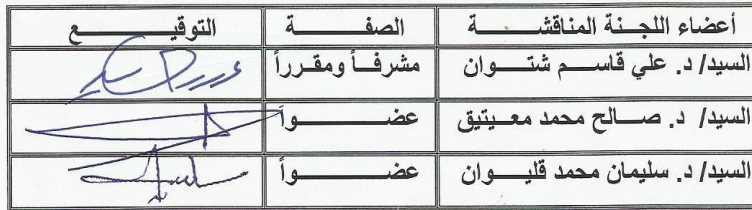 أعضاء اللجنة المناقشة الصفة التوقيع
السيد/ د. علي قاسم شتوان مشرفاً ومقرراً
السيد/ د. صالح محمد معيتيق عضواً
السيد/ د. سليمان محمد قليوان عضواً